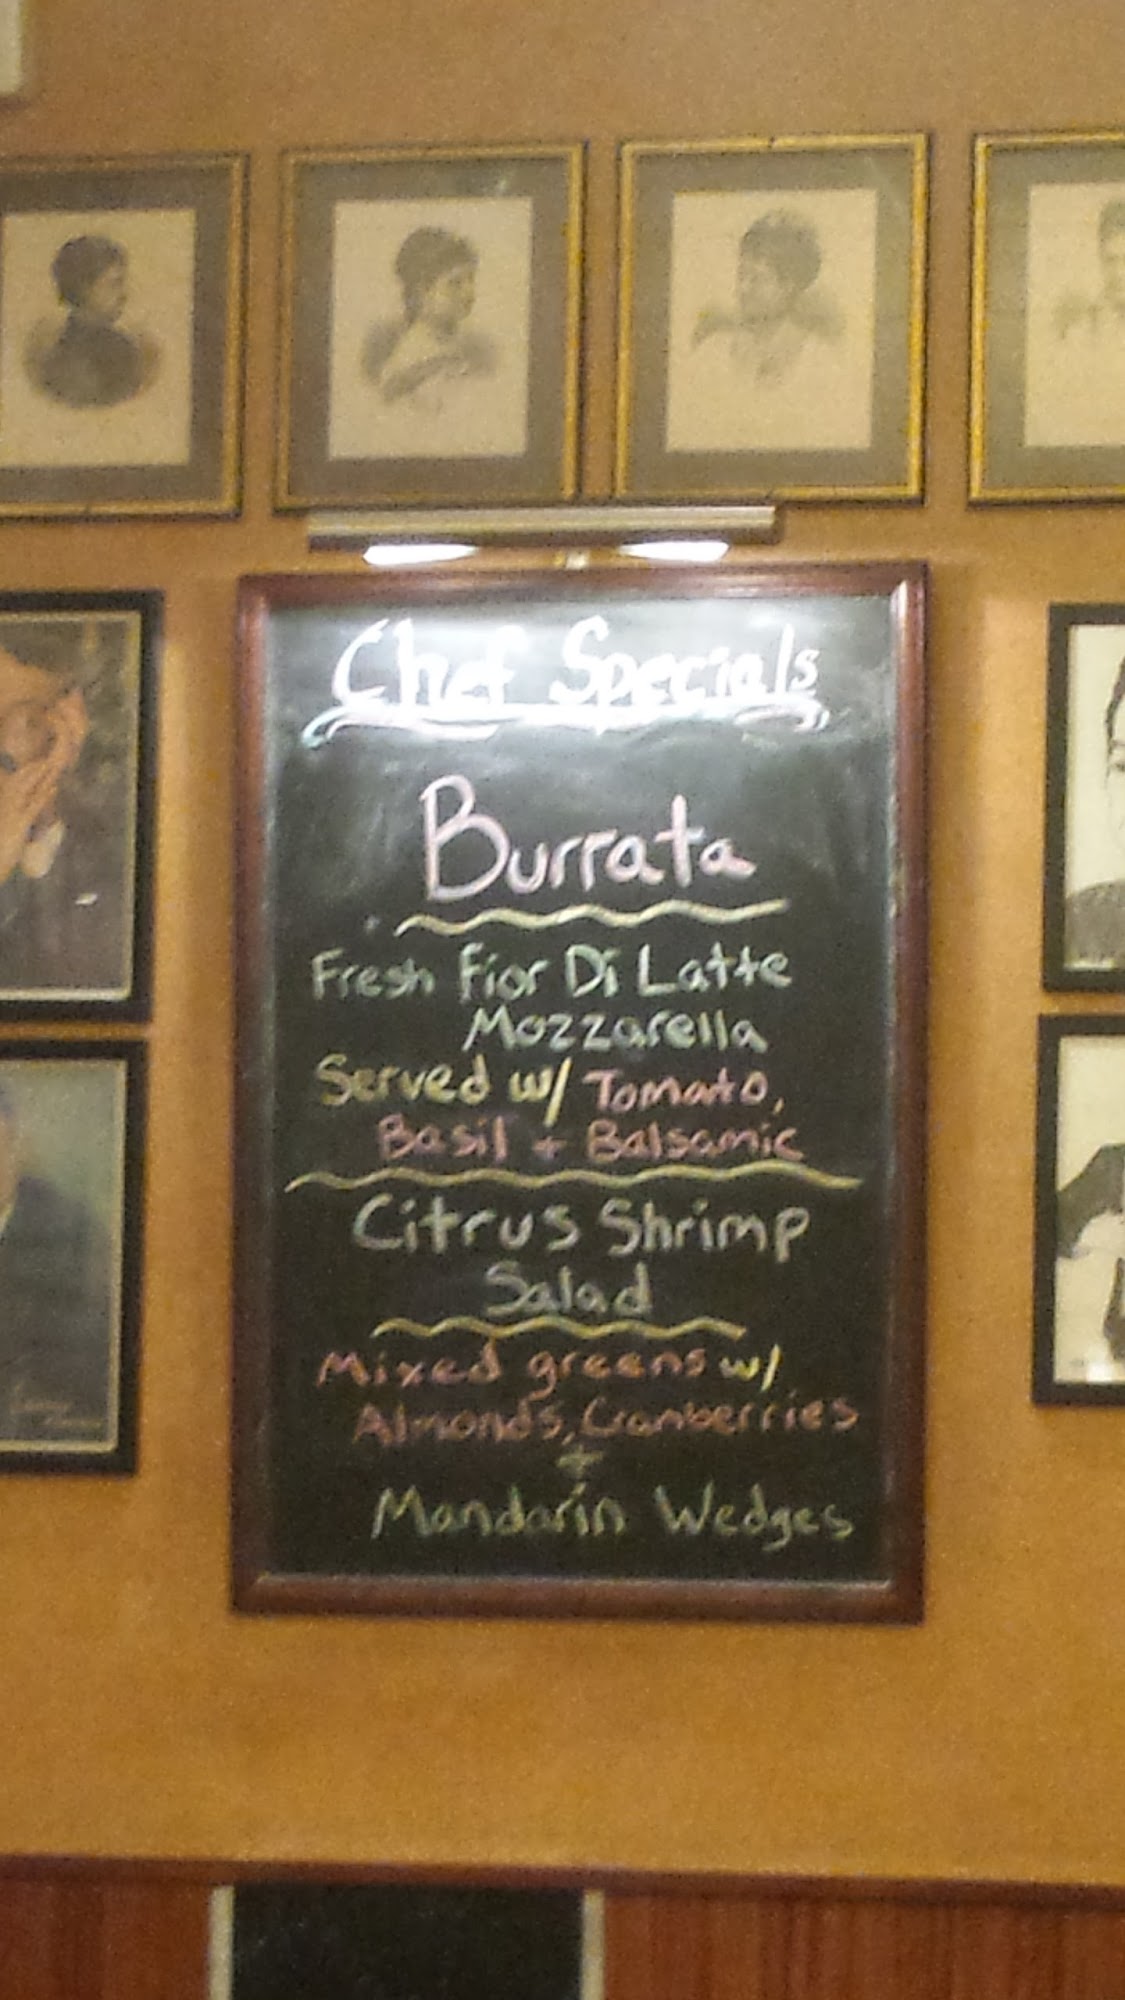 Chef Specials
Burrata
Fresh Fior Di Latte
Mozzarella
Served w/ Tomato,
Basil + Balsamic
Citrus Shrimp
Salad
Mixed greens w/
Almonds, Cranberries
+
Mandarin Wedges